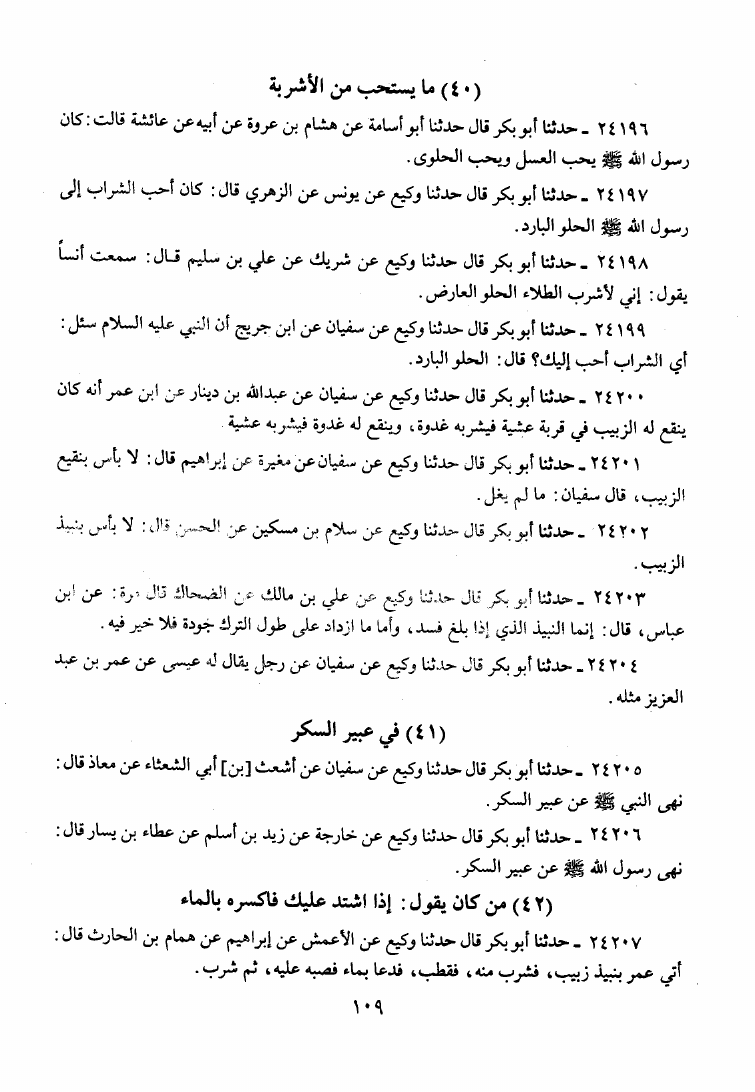 (٤٠) ما يستحب من الأشربة
٢٤١٩٦ ـ حدثنا أبو بكر قال حدثنا أبو أسامة عن هشام بن عروة عن أبيه عن عائشة قالت: كان
رسول الله ﷺ يحب العسل ويحب الحلوى.
٢٤١٩٧ ـ حدثنا أبو بكر قال حدثنا وكيع عن يونس عن الزهري قال: كان أحب الشراب إلى
رسول الله ﷺ الحلو البارد.
٢٤١٩٨ ـ حدثنا أبو بكر قال حدثنا وكيع عن شريك عن علي بن سليم قال: سمعت أنساً
يقول: إني لأشرب الطلاء الحلو العارض.
٢٤١٩٩ ـ حدثنا أبو بكر قال حدثنا وكيع عن سفيان عن ابن جريج أن النبي عليه السلام سئل:
أي الشراب أحب إليك؟ قال: الحلو البارد.
٢٤٢٠٠ ـ حدثنا أبو بكر قال حدثنا وكيع عن سفيان عن عبدالله بن دينار عن ابن عمر أنه كان
ينقع له الزبيب في قربة عشية فيشربه غدوة، وينقع له غدوة فيشربه عشية.
٢٤٢٠١ ـ حدثنا أبو بكر قال حدثنا وكيع عن سفيان عن مغيرة عن إبراهيم قال: لا بأس بنقيع
الزبيب، قال سفيان: ما لم يغل.
٢٤٢٠٢ ـ حدثنا أبو بكر قال حدثنا وكيع عن سلام بن مسكين عن الحسن قال: لا بأس بنبيذ
الزبيب.
٢٤٢٠٣ ـ حدثنا أبو بكر قال حدثنا وكيع عن علي بن مالك عن الضحاك قال مرة: عن ابن
عباس، قال: إنما النبيذ الذي إذا بلغ فسد، وأما ما ازداد على طول الترك جودة فلا خير فيه.
٢٤٢٠٤ ـ حدثنا أبو بكر قال حدثنا وكيع عن سفيان عن رجل يقال له عيسى عن عمر بن عبد
العزيز مثله.
(٤١) في عبير السكر
٢٤٢٠٥ ـ حدثنا أبو بكر قال حدثنا وكيع عن سفيان عن أشعث [بن] أبي الشعثاء عن معاذ قال:
نهى النبي ﷺ عن عبير السكر.
٢٤٢٠٦ ـ حدثنا أبو بكر قال حدثنا وكيع عن خارجة عن زيد بن أسلم عن عطاء بن يسار قال:
نهى رسول الله ﷺ عن عبير السكر.
(٤٢) من كان يقول: إذا اشتد عليك فاكسره بالماء
٢٤٢٠٧ ـ حدثنا أبو بكر قال حدثنا وكيع عن الأعمش عن إبراهيم عن همام بن الحارث قال:
أتي عمر بنبيذ زبيب، فشرب منه، فقطب، فدعا بماء فصبه عليه، ثم شرب.
١٠٩